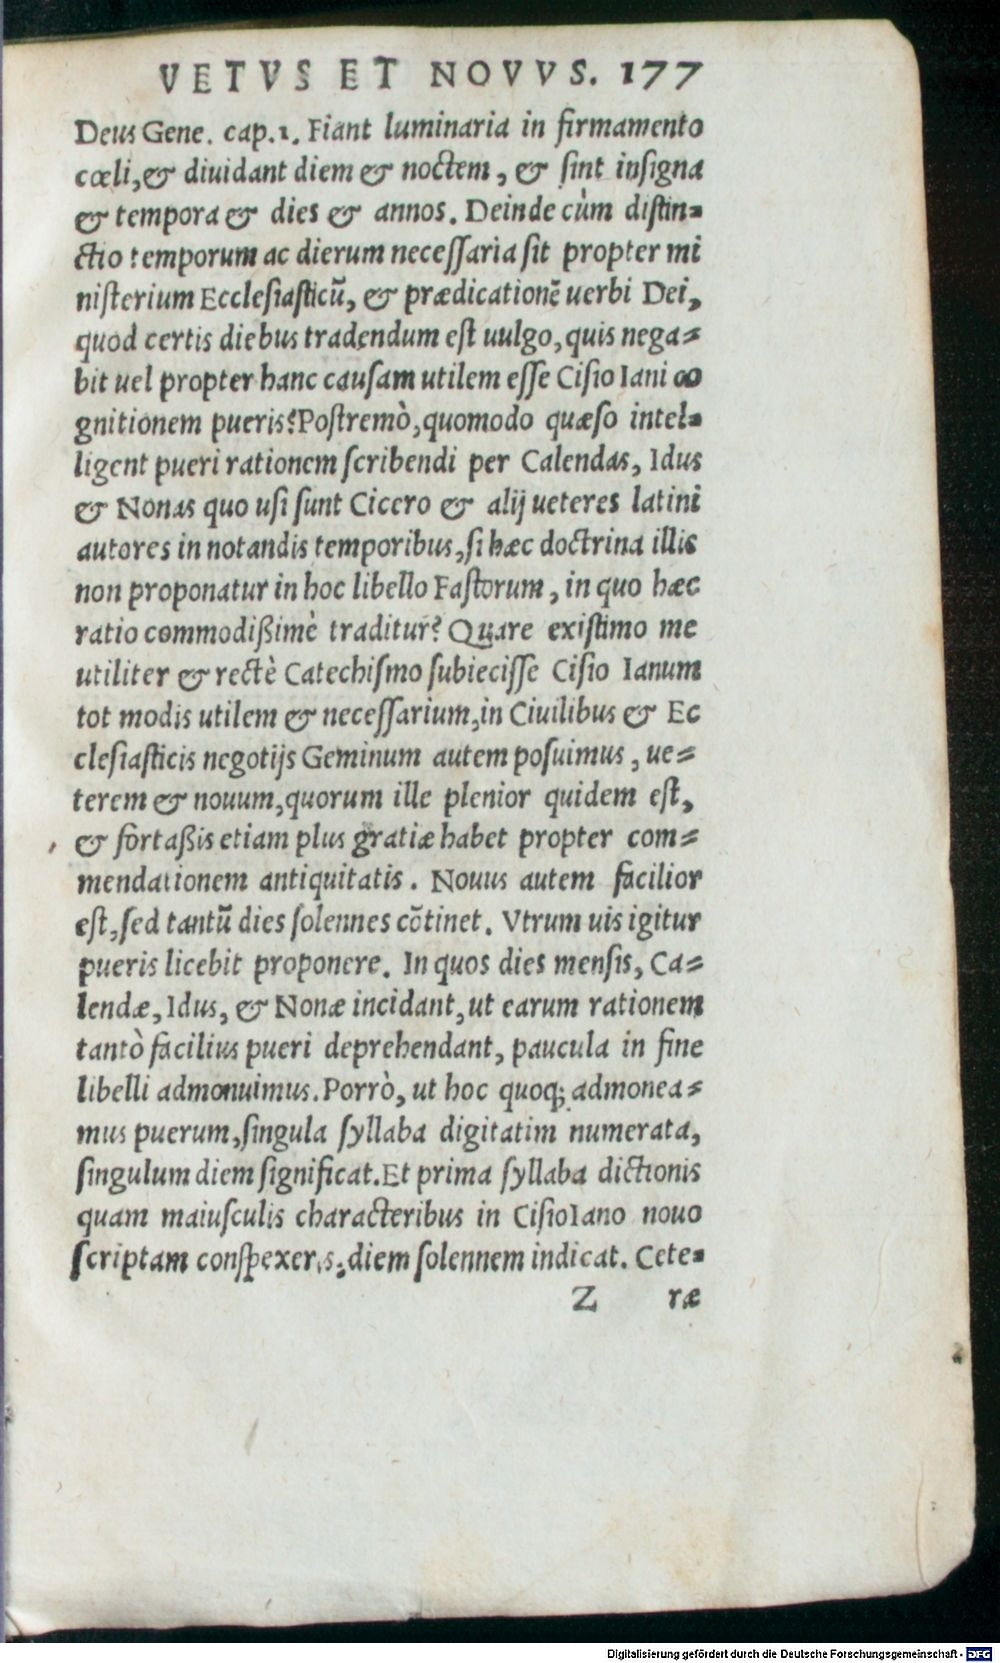 VETVS ET NOVVS. 177
Deus Gene. cap.1. Fiant luminaria in firmamento
cœli, & diuidant diem & noctem, & sint insigna
& tempora & dies & annos. Deinde cùm distin-
ctio temporum ac dierum necessaria sit propter mi
nisterium Ecclesiasticũ, & prædicationẽ uerbi Dei,
quod certis diebus tradendum est uulgo, quis nega-
bit uel propter hanc causam utilem esse Cisio Iani co
gnitionem pueris? Postremò, quomodo quæso intel-
ligent pueri rationem scribendi per Calendas, Idus
& Nonas quo usi sunt Cicero & alij ueteres latini
autores in notandis temporibus, si hæc doctrina illis
non proponatur in hoc libello Fastorum, in quo hæc
ratio commodißimè traditur? Quare existimo me
utiliter & rectè Catechismo subiecisse Cisio Ianum
tot modis utilem & necessarium, in Ciuilibus & Ec
clesiasticis negotijs Geminum autem posuimus, ue-
terem & nouum, quorum ille plenior quidem est,
& fortaßis etiam plus gratiæ habet propter com-
mendationem antiquitatis. Nouus autem facilior
est, sed tantũ dies solennes cõtinet. Vtrum uis igitur
pueris licebit proponere. In quos dies mensis, Ca-
lendæ, Idus, & Nonæ incidant, ut earum rationem
tantò facilius pueri deprehendant, paucula in fine
libelli admonuimus. Porrò, ut hoc quoq; admonea-
mus puerum, singula syllaba digitatim numerata,
singulum diem significat. Et prima syllaba dictionis
quam maiusculis characteribus in CisioIano nouo
scriptam conspexeris, diem solennem indicat. Cete-
Z ræ
Digitalisierung gefördert durch die Deutsche Forschungsgemeinschaft - DFG